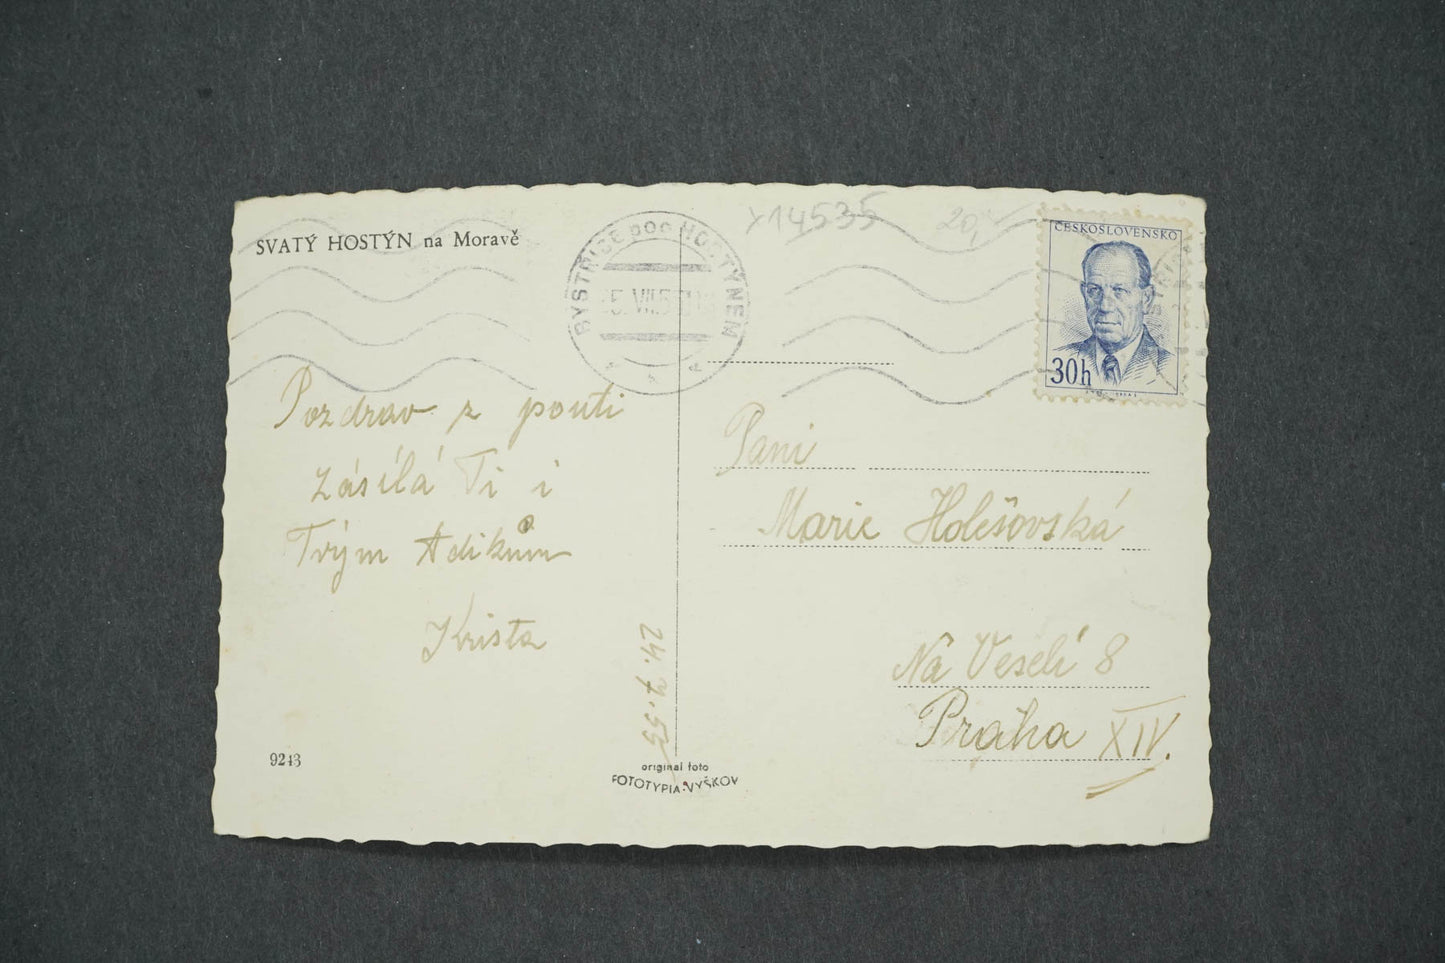 SVATÝ HOSTÝN na Moravě
BYSTŘICE POD HOSTÝNEM
14535
20,
ČESKOSLOVENSKO
30h
Pozdrav z pouti
zásílá Ti i
Tvým Adikům
Krista
24. 7. 55
Paní
Marie Holešovská
Na Veselí 8
Praha XIV.
9243
original foto
FOTOTYPIA-VYŠKOV